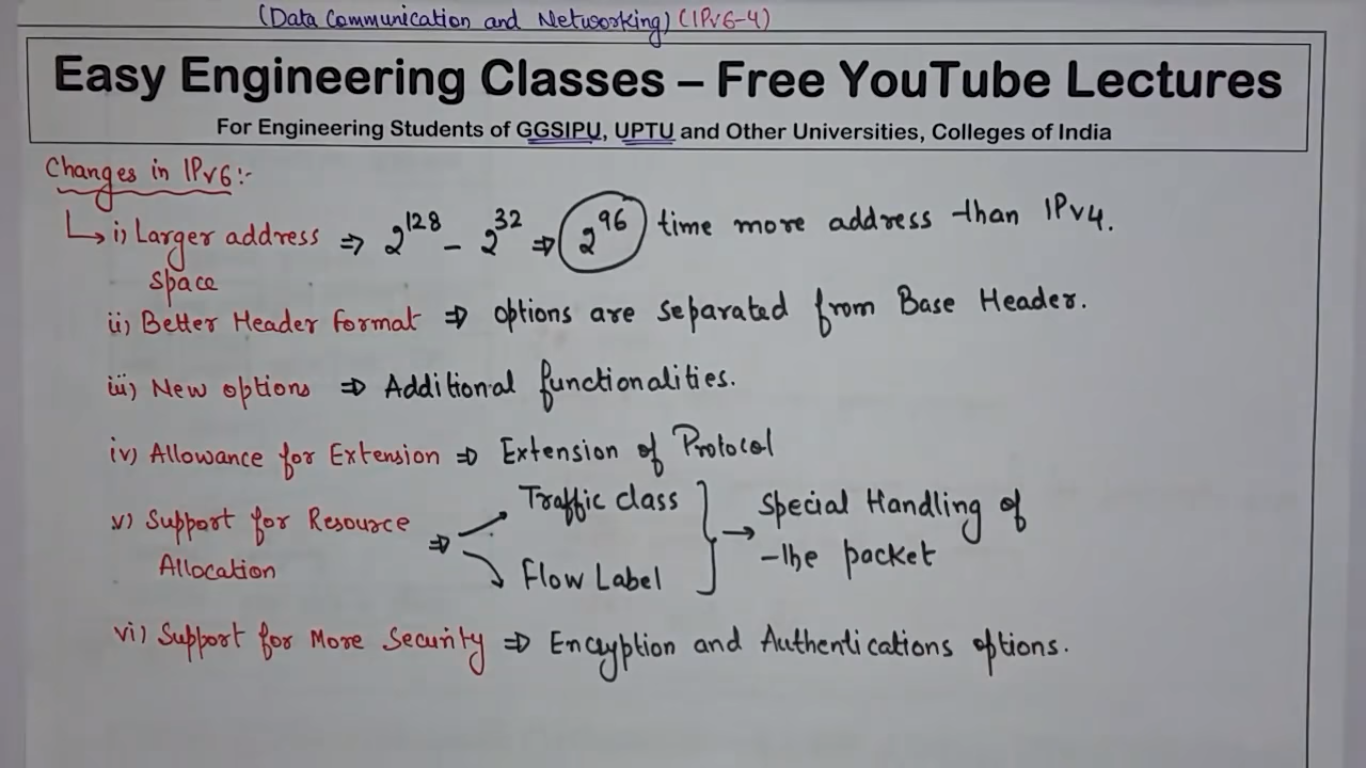 (Data Communication and Networking) (IPv6-4)
Easy Engineering Classes – Free YouTube Lectures
For Engineering Students of GGSIPU, UPTU and Other Universities, Colleges of India
Changes in IPv6:-
i) Larger address space ⇒ 2^128 - 2^32 ⇒ 2^96 time more address than IPv4.
ii) Better Header Format ⇒ options are separated from Base Header.
iii) New options ⇒ Additional functionalities.
iv) Allowance for Extension ⇒ Extension of Protocol
v) Support for Resource Allocation ⇒ Traffic class
Flow Label
→ Special Handling of
the packet
vi) Support for More Security ⇒ Encryption and Authentications options.